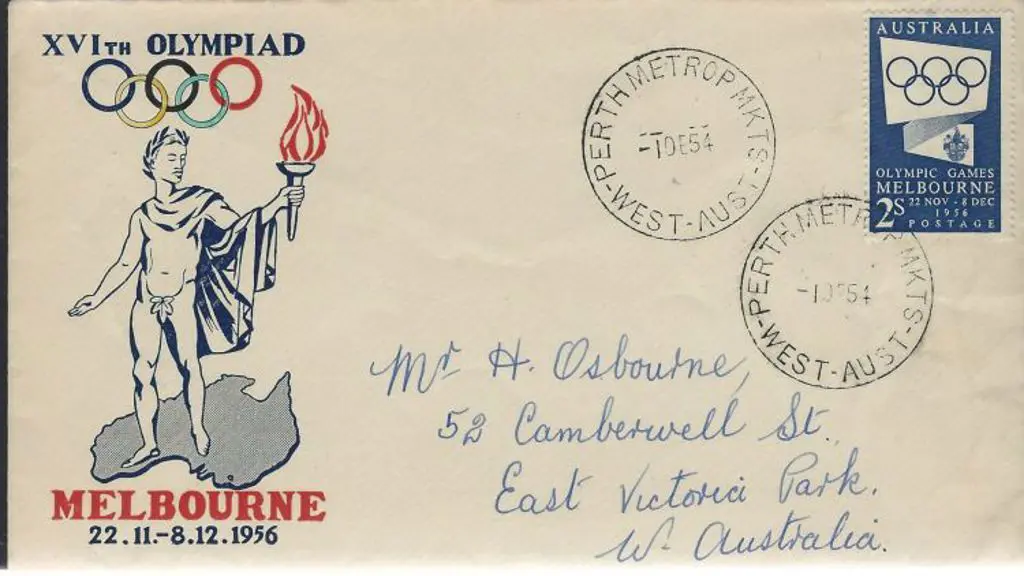 XVITH OLYMPIAD
MELBOURNE
22.11.-8.12.1956
PERTH METROP MKTS
-WEST-AUST-
-1DE54
AUSTRALIA
OLYMPIC GAMES
MELBOURNE
2S 22 NOV - 8 DEC
1956
POSTAGE
PERTH METR P MKTS
-WEST-AUST-
Mr H. Osbourne,
52 Camberwell St.
East Victoria Park.
W. Australia.